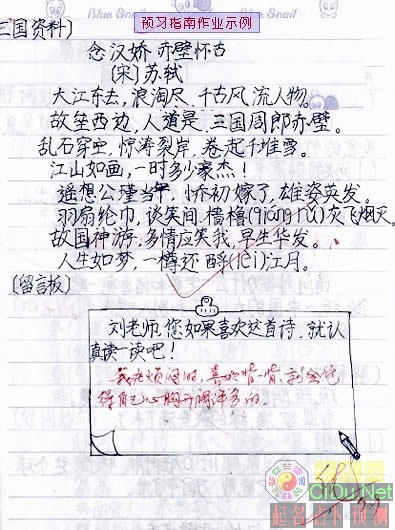 预习指南作业示例
Blue Snail Blue Snail
三国资料〕
念汉娇 赤壁怀古
〔宋〕苏轼
大江东去,浪淘尽、千古风流人物。
故垒西边,人道是、三国周郎赤壁。
乱石穿空,惊涛裂岸,卷起千堆雪。
江山如画,一时多少豪杰!
遥想公瑾当年,小乔初嫁了,雄姿英发。
羽扇纶巾,谈笑间、樯橹(qiáng rǔ)灰飞烟灭。
故国神游,多情应笑我,早生华发。
人生如梦,一樽还酹(lèi)江月。
〔留言板〕
刘老师,您如果喜欢这首诗,就认
真读一读吧!
我在烦闷时,真的背一背,就会觉
得自己心胸开阔许多的。
CiDu.Net
起名 日下预测